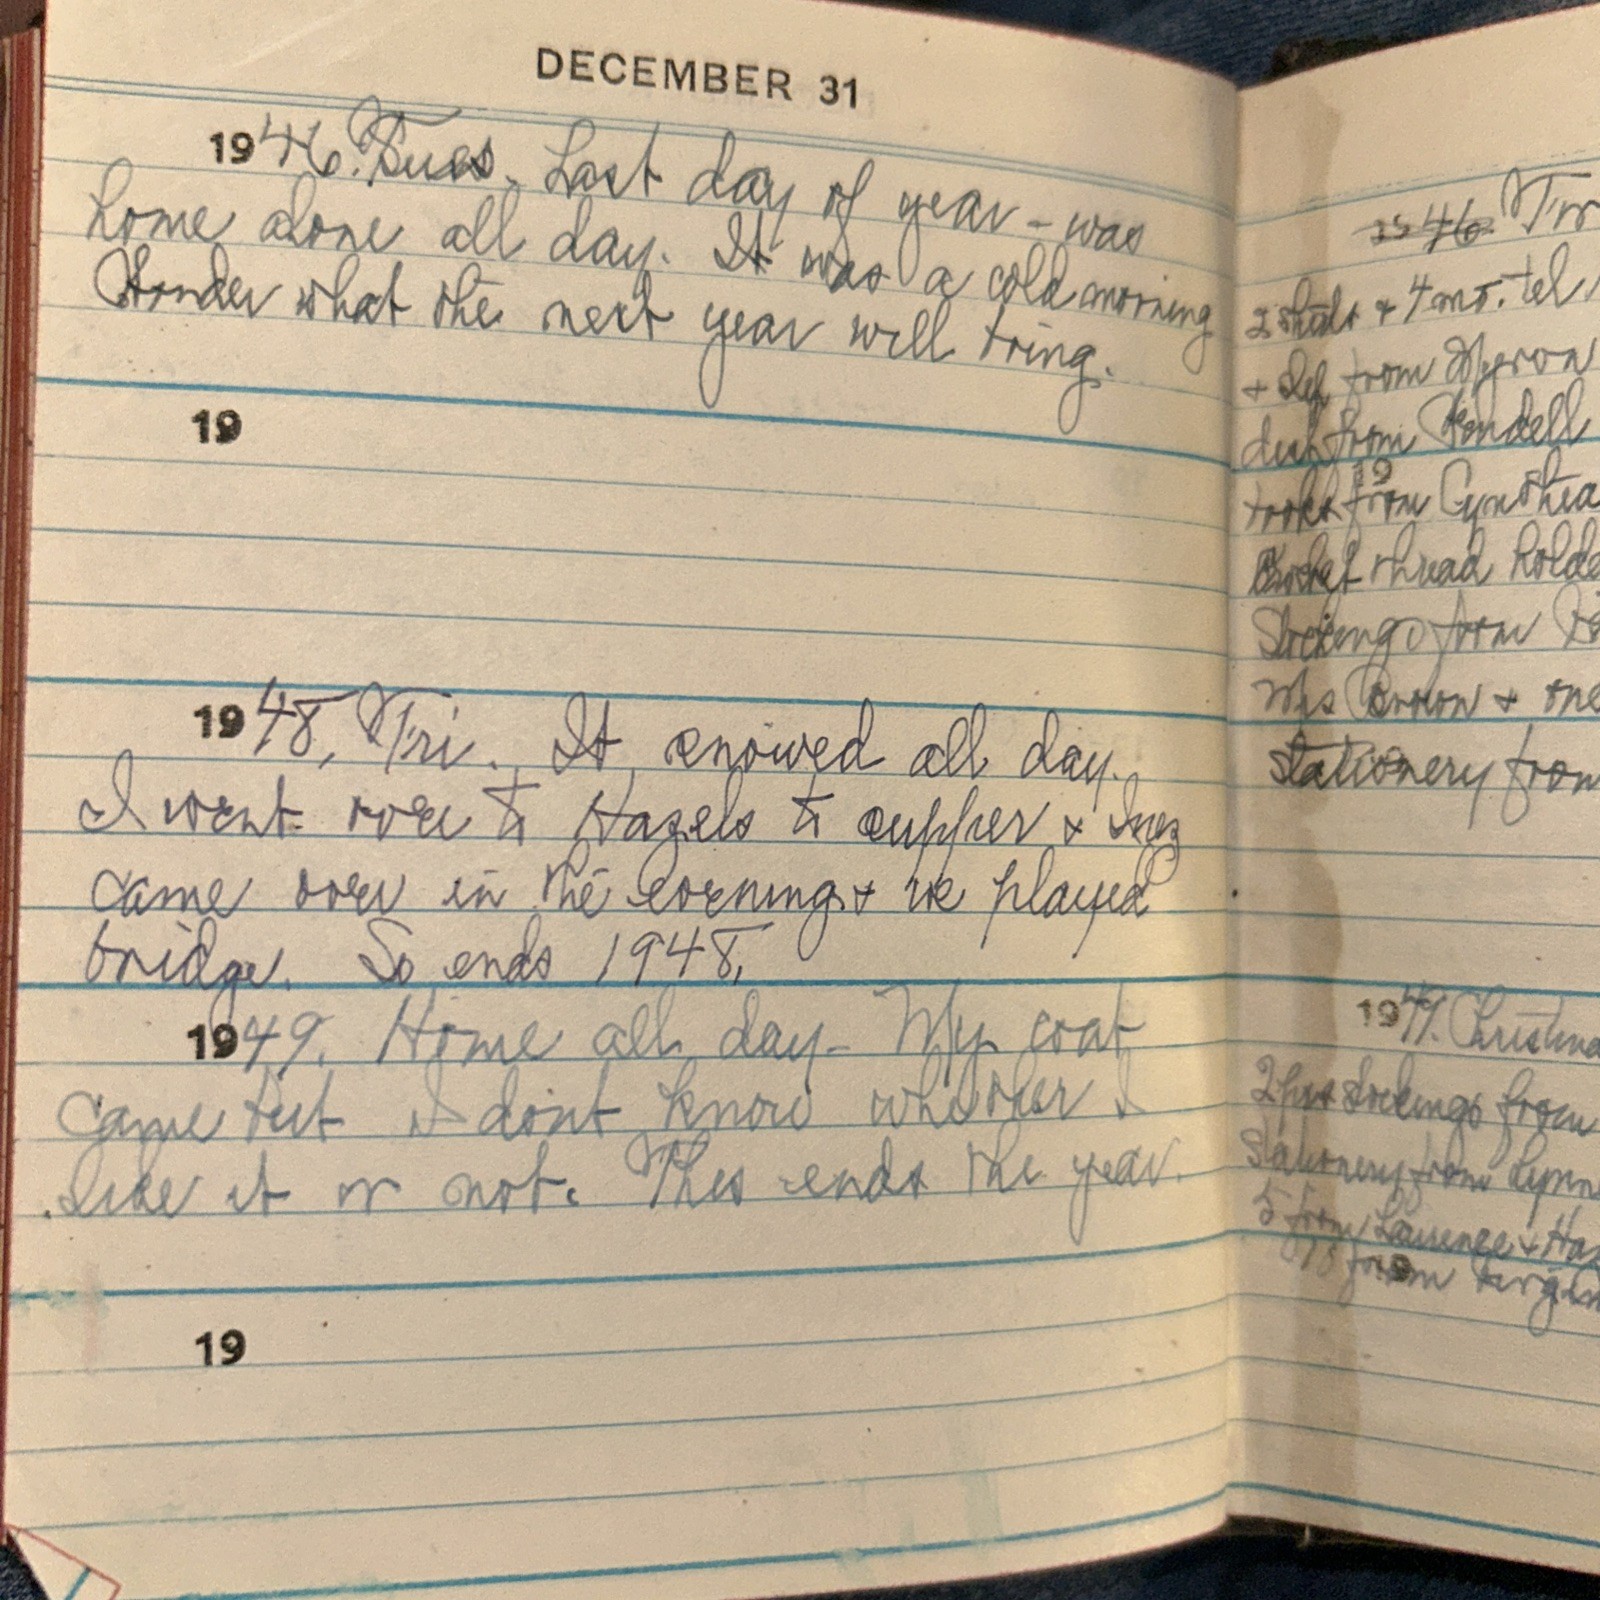 DECEMBER 31
1946. Tues. Last day of year - was
home alone all day. It was a cold morning
Wonder what the next year will bring.
19
1948, Fri. It snowed all day.
I went over to Hazels to supper & Inez
came over in the evening & we played
bridge. So ends 1948.
1949. Home all day - My coat
came but I dont know whether I
like it or not. This ends the year.
19
1946.
2 & 4 mo. tel
+ from Myron
dish from Kendell
19
books from Cynthia
Crochet thread holde
Stockings from
Mrs Brown + one
Stationery from
1949. Christma
2 prs stockings from
Stationery from Lynn
5 from Lawrence + Haz
from Virgin